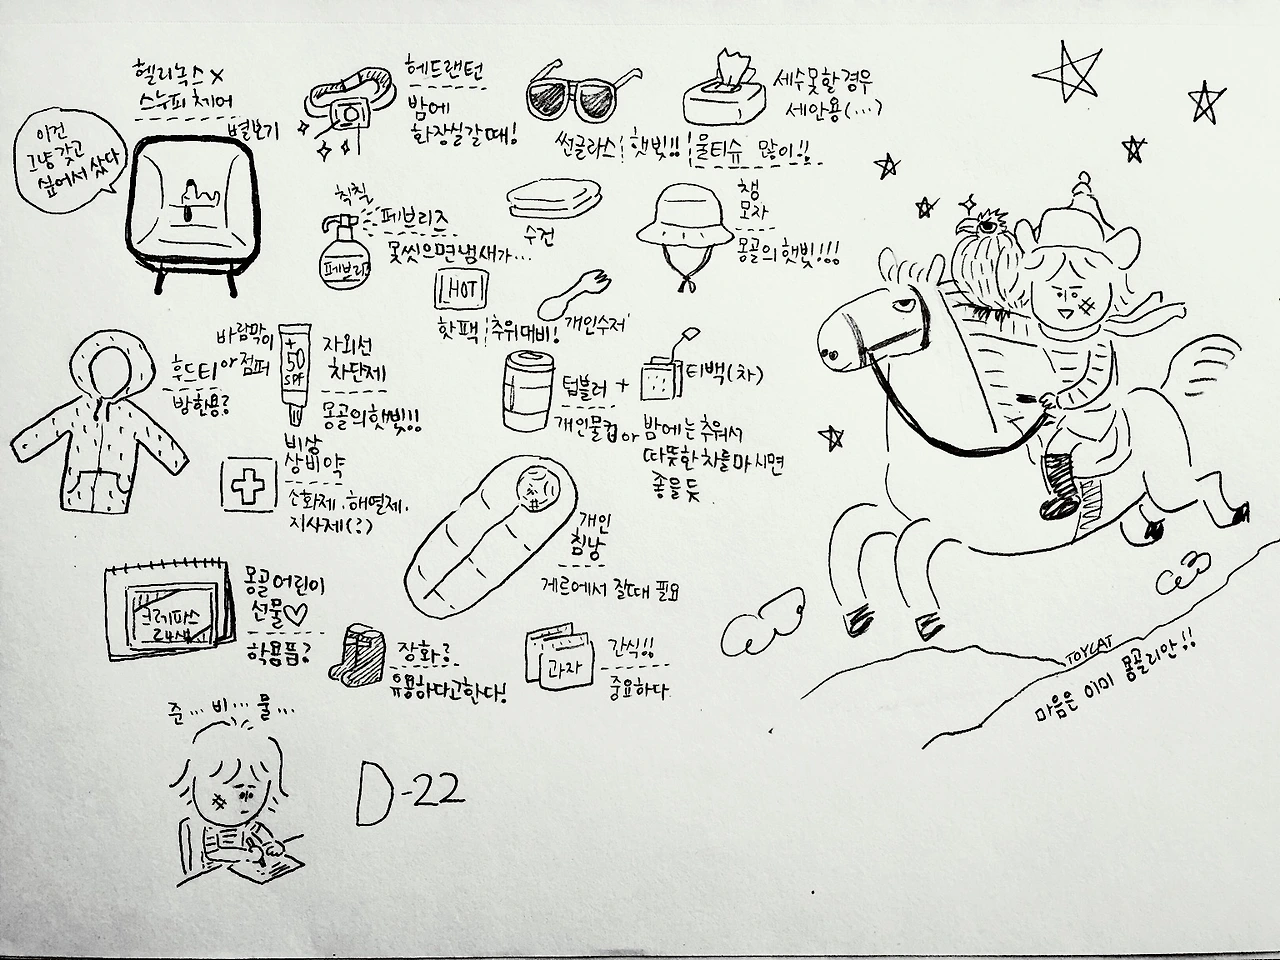 헬리녹스 x
스누피 체어
별보기
이건
그냥 갖고
싶어서 샀다
헤드랜턴
밤에
화장실갈때!
썬글라스
햇빛!!
세수못할경우
세안용(...)
물티슈 많이!!
칙칙
페브리즈
페브리
못씻으면냄새가...
수건
챙
모자
몽골의햇빛!!!
HOT
핫팩
추위대비!
개인수저
바람막이
or 점퍼
후드티
방한용?
+
50
SPF
자외선
차단제
몽골의햇빛!!
텀블러 +
개인물컵 or
티백(차)
밤에는추워서
따뜻한차를마시면
좋을듯
비상
상비약
소화제.해열제.
지사제(?)
개인
침낭
게르에서 잘때 필요
크레파스
24색
몽골어린이
선물♡
학용품?
장화?
유용하다고한다!
과자
간식!!
중요하다
TOYCAT
마음은 이미 몽골리안!!
준...비...물...
D-22